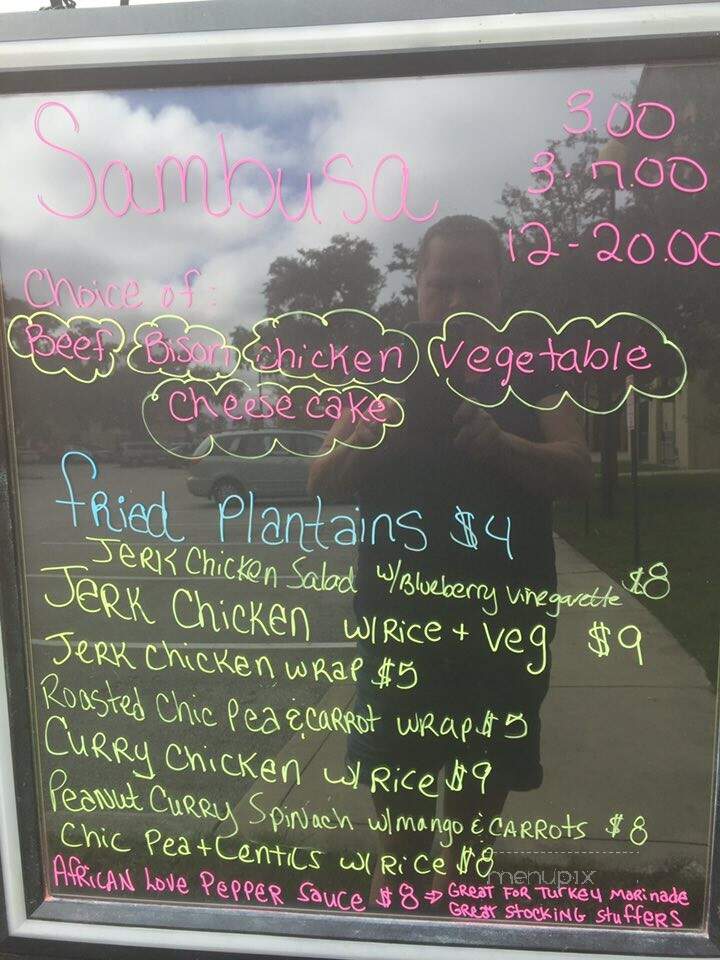 Sambusa
3.00
3-7.00
12-20.00
Choice of:
Beef Bison Chicken Vegetable
Cheese cake
fRied Plantains $4
JERK Chicken Salad w/Blueberry vinegarette $8
JERK Chicken w/Rice + veg $9
JERK Chicken wRaP $5
Roasted Chic Pea & CARROT wRaP $5
CURRy Chicken w/ RiCe $9
PeaNut CuRRy SpiNach w/mango & CARROTs $8
Chic Pea+Lentils w/ RiCe $8
AFRiCAN Love PePPER Sauce $8 → GREAT FOR TuRkey MaRinade
GReat StocKiNG Stuffers
menupix